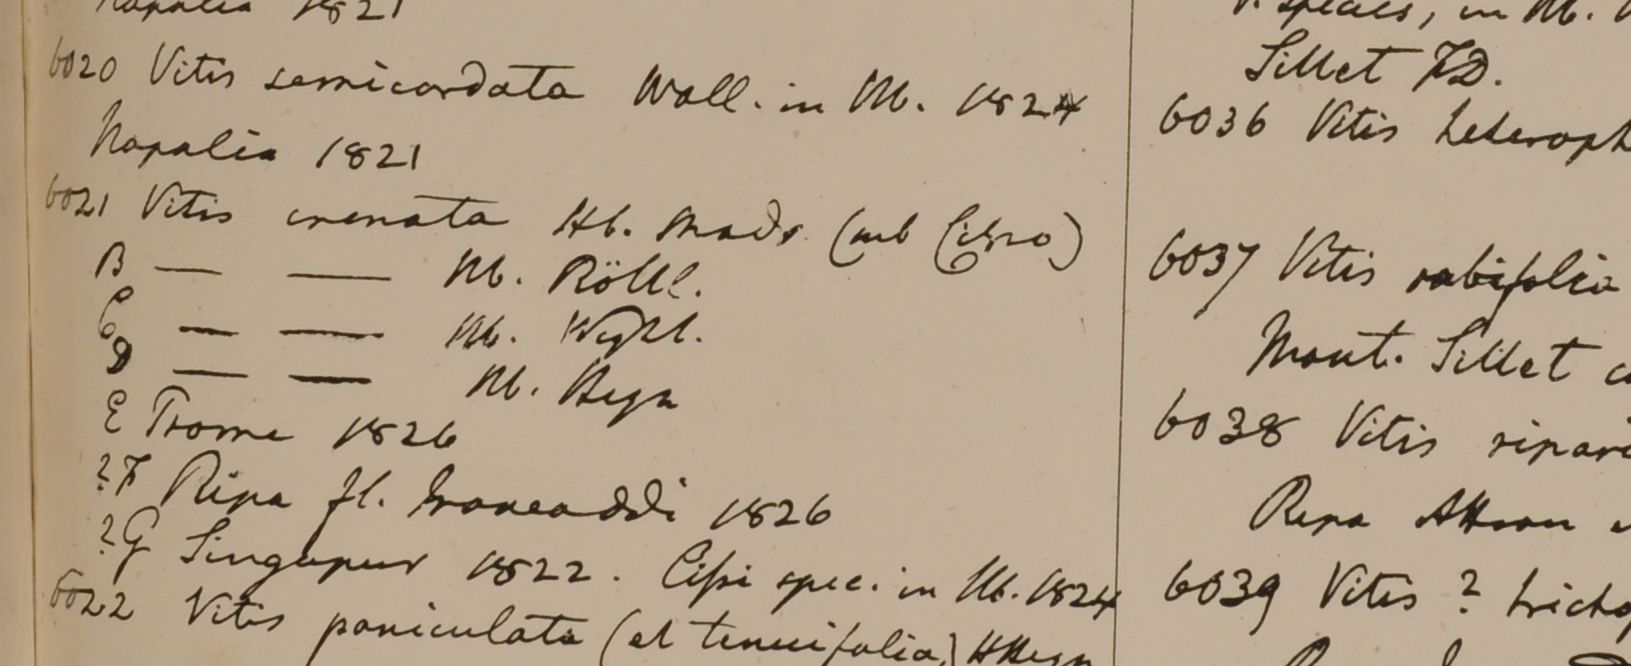 Napalia 1821
6020 Vitis semicordata Wall. in Hb. 1824
Napalia 1821
6021 Vitis crenata Hb. Madr. (sub Cisso)
B — — Hb. Röttl.
C — — Hb. Wight.
D — — Hb. Heyn
E Prome 1826
?F Ripa fl. Irawaddi 1826
?G Singapur 1822. Cissi spec. in Hb. 1824
6022 Vitis paniculata (et tenuifolia) HHeyn
species, in Hb.
Sillet FD.
6036 Vitis heteroph
6037 Vitis rubifolia
Mont. Sillet
6038 Vitis ripari
Ripa Attran
6039 Vitis ? tricho